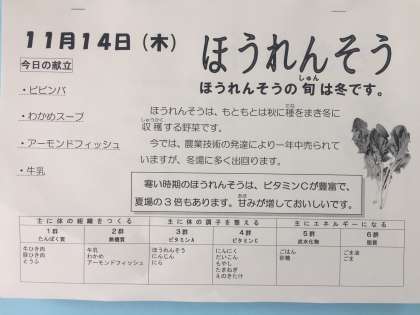 11月14日(木)
ほうれんそう
ほうれんそうの旬は冬です。
しゅん
今日の献立
・ビビンバ
・わかめスープ
・アーモンドフィッシュ
・牛乳
ほうれんそうは、もともとは秋に種をまき冬に
収穫する野菜です。
しゅうかく
今では、農業技術の発達により一年中売られて
いますが、冬場に多く出回ります。
寒い時期のほうれんそうは、ビタミンCが豊富で、
夏場の3倍もあります。甘みが増しておいしいです。
主に体の組織をつくる
主に体の調子を整える
主にエネルギーになる
1群
たんぱく質
2群
無機質
3群
ビタミンA
4群
ビタミンC
5群
炭水化物
6群
脂質
牛ひき肉
豚ひき肉
とうふ
牛乳
わかめ
アーモンドフィッシュ
ほうれんそう
にんじん
にら
にんにく
だいこん
もやし
たまねぎ
えのきたけ
ごはん
砂糖
ごま油
ごま